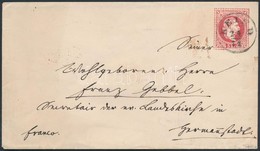 Seiner
Wohlgeboren Herrn
Franz Gebbel
Secretär der ev. Landeskirche
in
Hermannstadt
Franco.